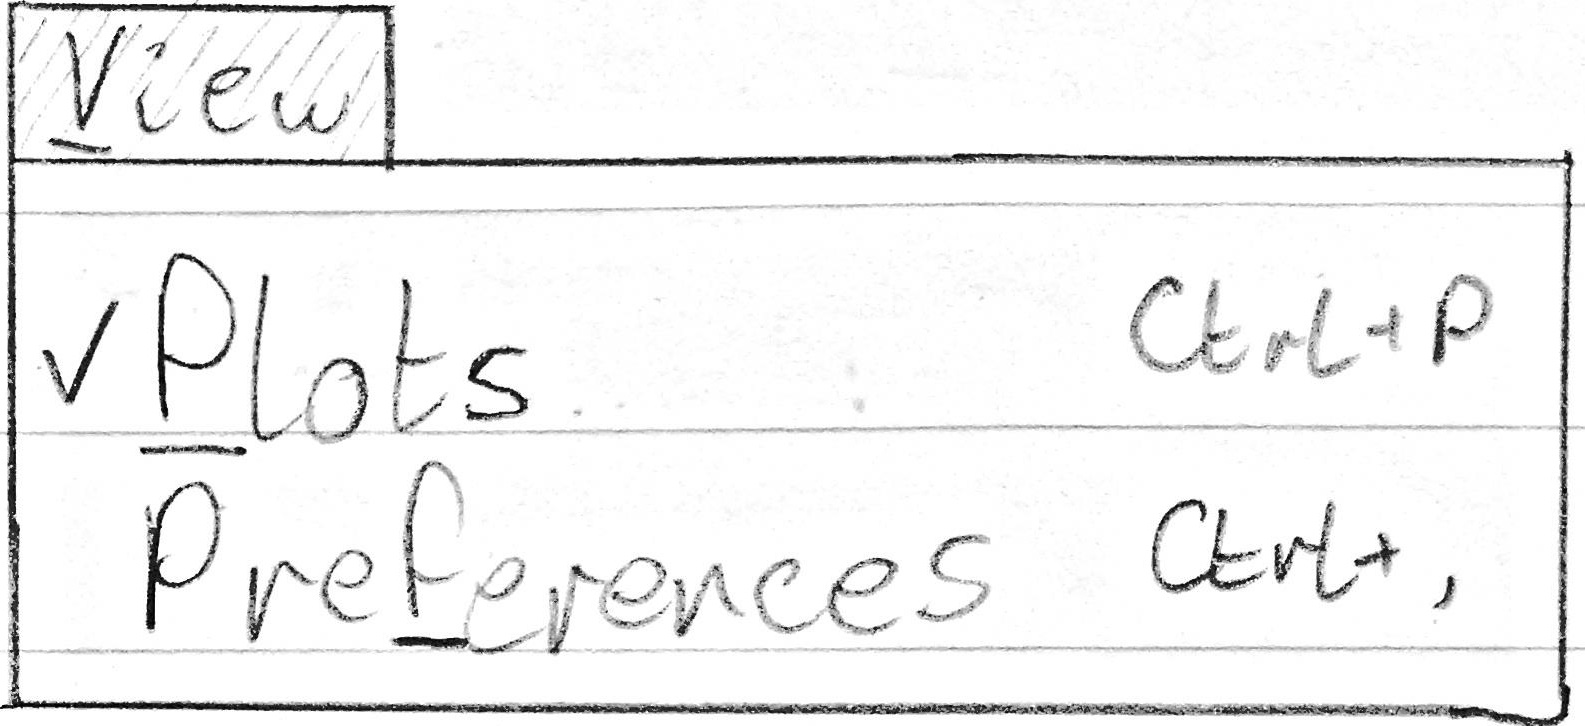 View
✓ Plots Ctrl+P
Preferences Ctrl+,